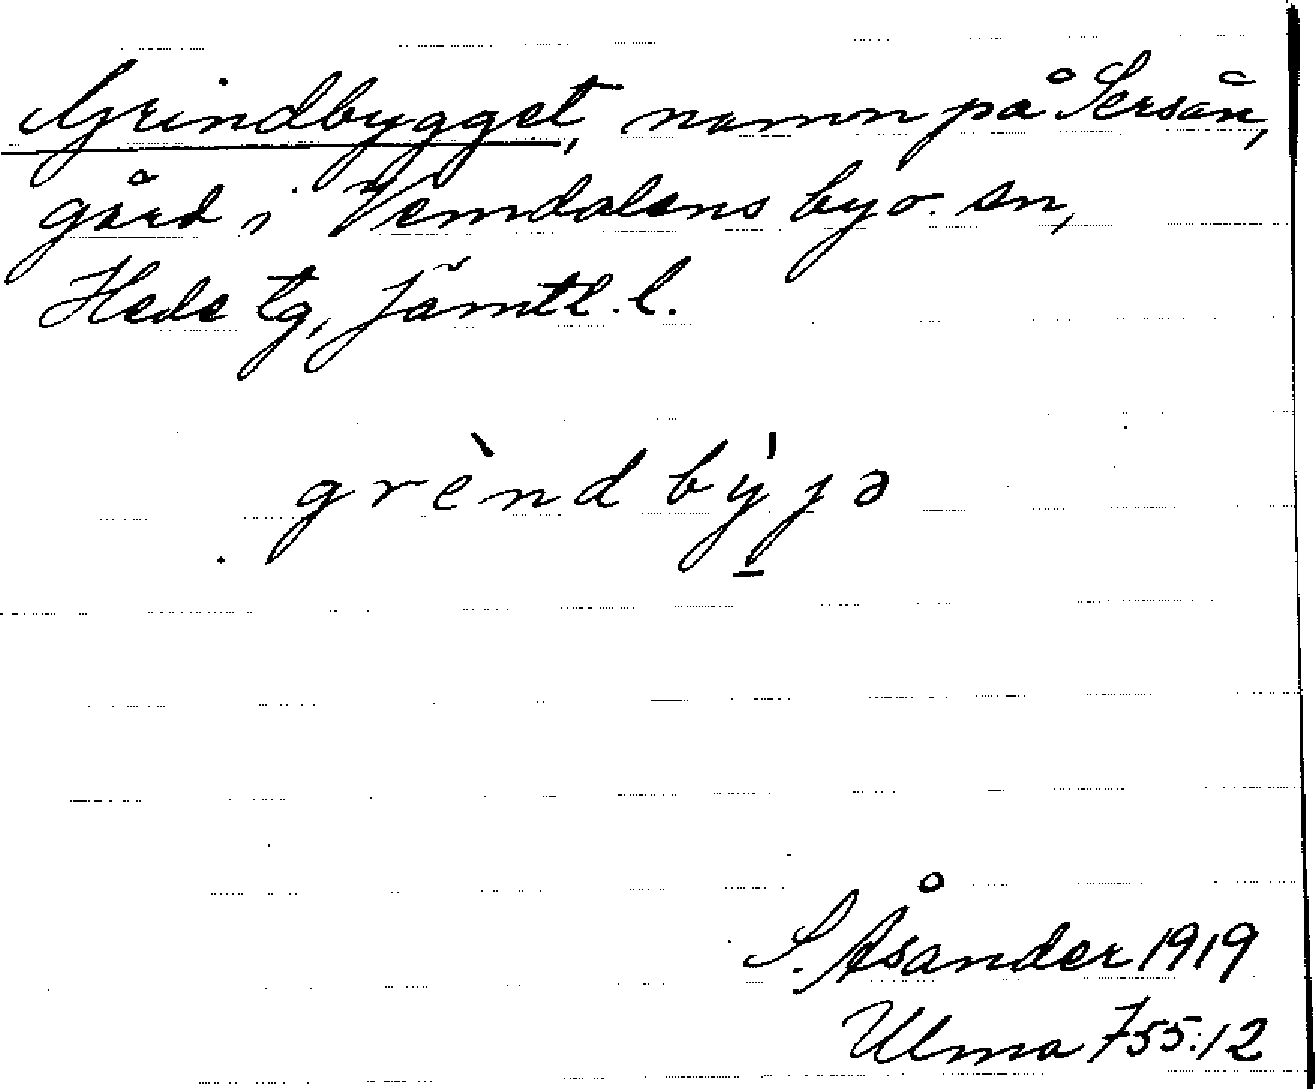 Grindbygget, namn på Persån,
gård i Vemdalens by o. sn,
Hede tg, Jämtl. l.
grènd bỳjə
S. Åsander 1919
Ulma 755:12